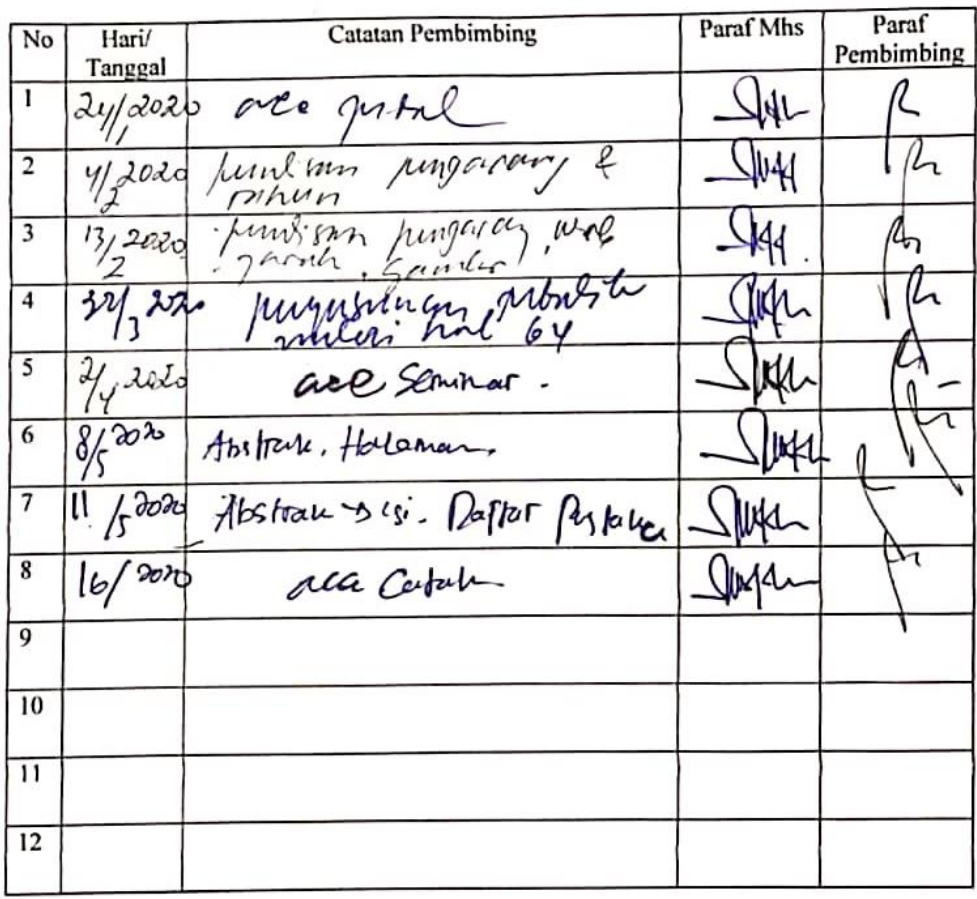 No Hari/ Tanggal Catatan Pembimbing Paraf Mhs Paraf Pembimbing
1 24/1 2020 acc
2 4/2 2020 penulisan pengarang &
tahun
3 13/2 2020 penulisan pengarang,
gambar
4 30/3 2020 penyusunan
hal 64
5 2/4 2020 acc Seminar.
6 8/5 2020 Abstrak, Halaman,
7 11/5 2020 Abstrak → isi. Daftar Pustaka
8 16/ 2020 acc Cetak
9
10
11
12